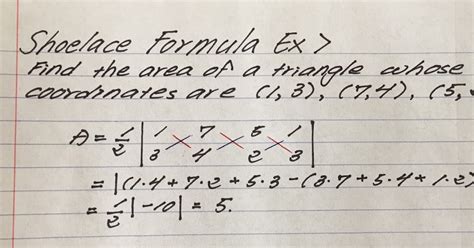 Shoelace Formula Ex>
Find the area of a triangle whose
coordinates are (1,3), (7,4), (5,
A = 1/2 | 1 7 5 1
3 4 2 3 |
= |(1·4+7·2+5·3-(3·7+5·4+1·2)
= 1/2 |-10| = 5.